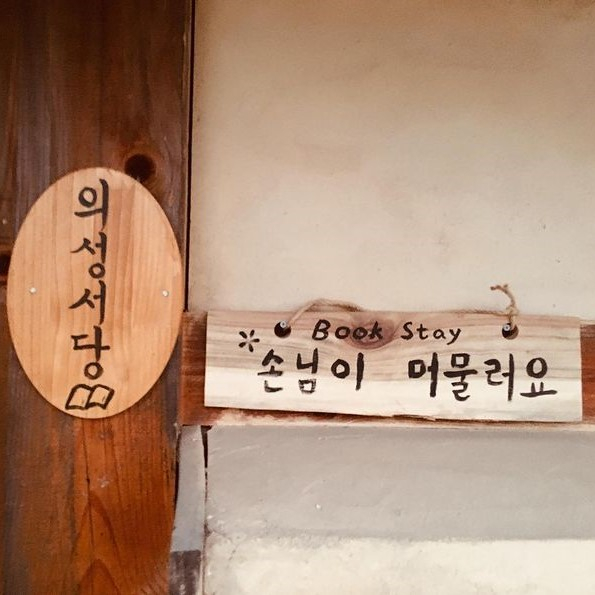 의성서당
Book Stay
* 손님이 머물러요